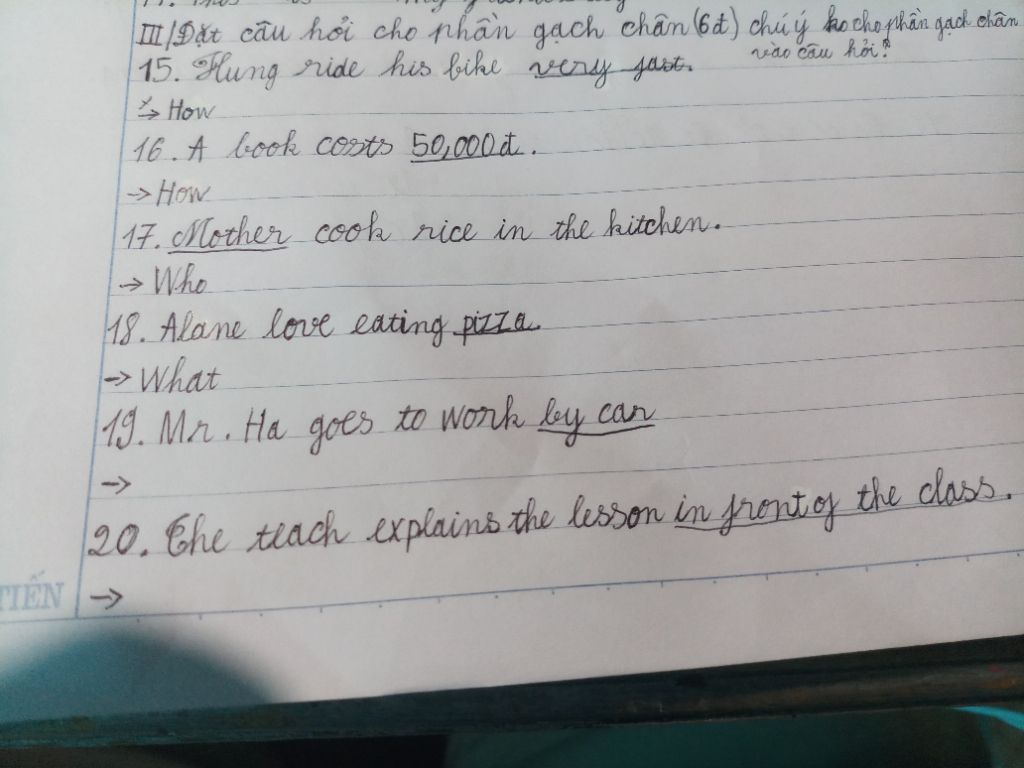 III/Đặt câu hỏi cho phần gạch chân (6đ) chú ý ko cho phần gạch chân
vào câu hỏi?
15. Hung ride his bike very fast.
→ How
16. A book costs 50,000đ.
→ How
17. Mother cook rice in the kitchen.
→ Who
18. Alane love eating pizza.
→ What
19. Mr. Ha goes to work by car
→
20. The teach explains the lesson in front of the class.
→
TIẾN